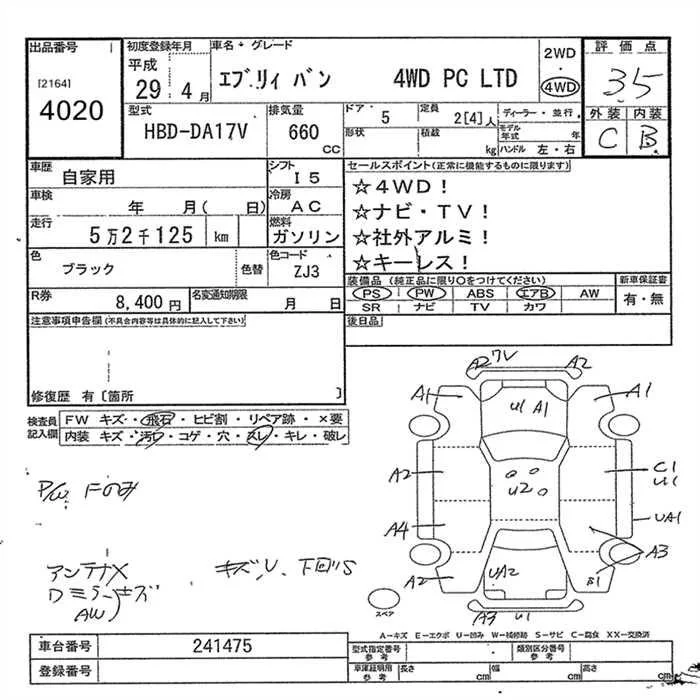 出品番号
[2164]
4020
初度登録年月
平成
29年4月
車名・グレード
エブリィ バン 4WD PC LTD
2WD
・
4WD
評価点
35
外装 内装
C B
型式
HBD-DA17V
排気量
660
CC
ドア・
5
形状
定員
2[4]人
積載
kg
ディーラー・並行
モデル年式 年
ハンドル 左・右
車歴
自家用
シフト
I5
車検
年 月( 日)
冷房
AC
走行
5万2千125 km
燃料
ガソリン
色
ブラック
色替
色コード
ZJ3
R券
8,400円
名変通知期限
月 日
セールスポイント(正常に機能するものに限ります)
☆4WD!
☆ナビ・TV!
☆社外アルミ!
☆キーレス!
装備品(純正品に限り○をつけてください)
PS PW ABS エアB AW
SR ナビ TV カワ
新車保証書
有・無
後日品
注意事項申告欄(不具合内容等は具体的に記入して下さい)
修復歴 有〔箇所 〕
検査員記入欄
FW キズ・飛石・ヒビ割・リペア跡・×要
内装 キズ・汚レ・コゲ・穴・スレ・キレ・破レ
P/W Fのみ
アンテナX
Dミラーキズ
AW
キズ、U、下回りS
A2 7V A2
A1 A1
U1 A1
A2 U2 C1
U1
A4 UA1
A3
A2 UA2 B1
A3 U1
スペア
A-キズ E-エクボ U-凹み W-補修跡 S-サビ C-腐食 XX-交換済
車台番号
241475
登録番号
型式指定番号
参考
類別区分番号
参考
車庫証明用
参考
長さ cm
幅 cm
高さ cm